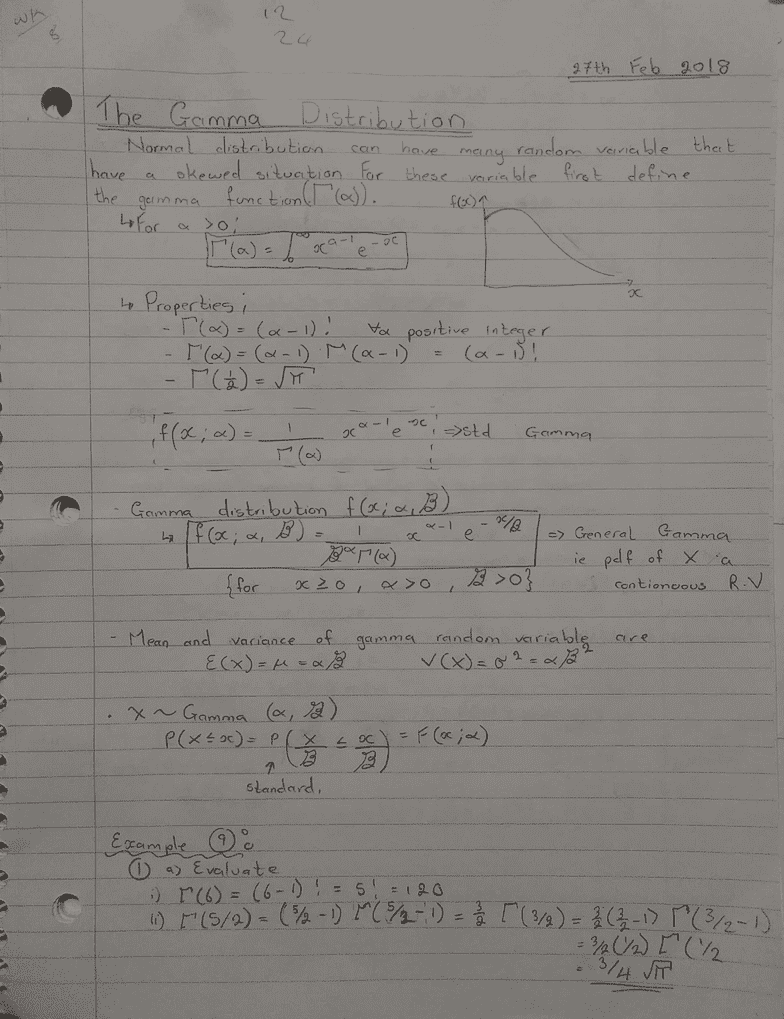 wk 8
12
24
27th Feb 2018
The Gamma Distribution
Normal distribution can have many random variable that
have a skewed situation For these variable first define
the gamma function (Γ(α)).
↳ For α >0;
Γ(α) = ∫₀^∞ x^(α-1) e^(-x)
f(x)
x
↳ Properties;
- Γ(α) = (α-1)! ∀α positive integer
- Γ(α) = (α-1) Γ(α-1) = (α-1)!
- Γ(1/2) = √π
f(x;α) = 1/Γ(α) x^(α-1) e^(-x) ⇒ std Gamma
- Gamma distribution f(x;α,β)
↳ f(x;α,β) = 1/(β^α Γ(α)) x^(α-1) e^(-x/β) ⇒ General Gamma
ie pdf of X a
{for x ≥ 0, α > 0, β > 0} contionuous R.V
- Mean and variance of gamma random variable are
E(X) = μ = αβ V(X) = σ² = αβ²
· X ~ Gamma (α, β)
P(X ≤ x) = P(X/β ≤ x/β) = F(x;α)
↑
standard.
Example 9:
① a) Evaluate
i) Γ(6) = (6-1)! = 5! = 120
ii) Γ(5/2) = (5/2 -1) Γ(5/2 -1) = 3/2 Γ(3/2) = 3/2(3/2 -1) Γ(3/2 -1)
= 3/2(1/2) Γ(1/2
= 3/4 √π